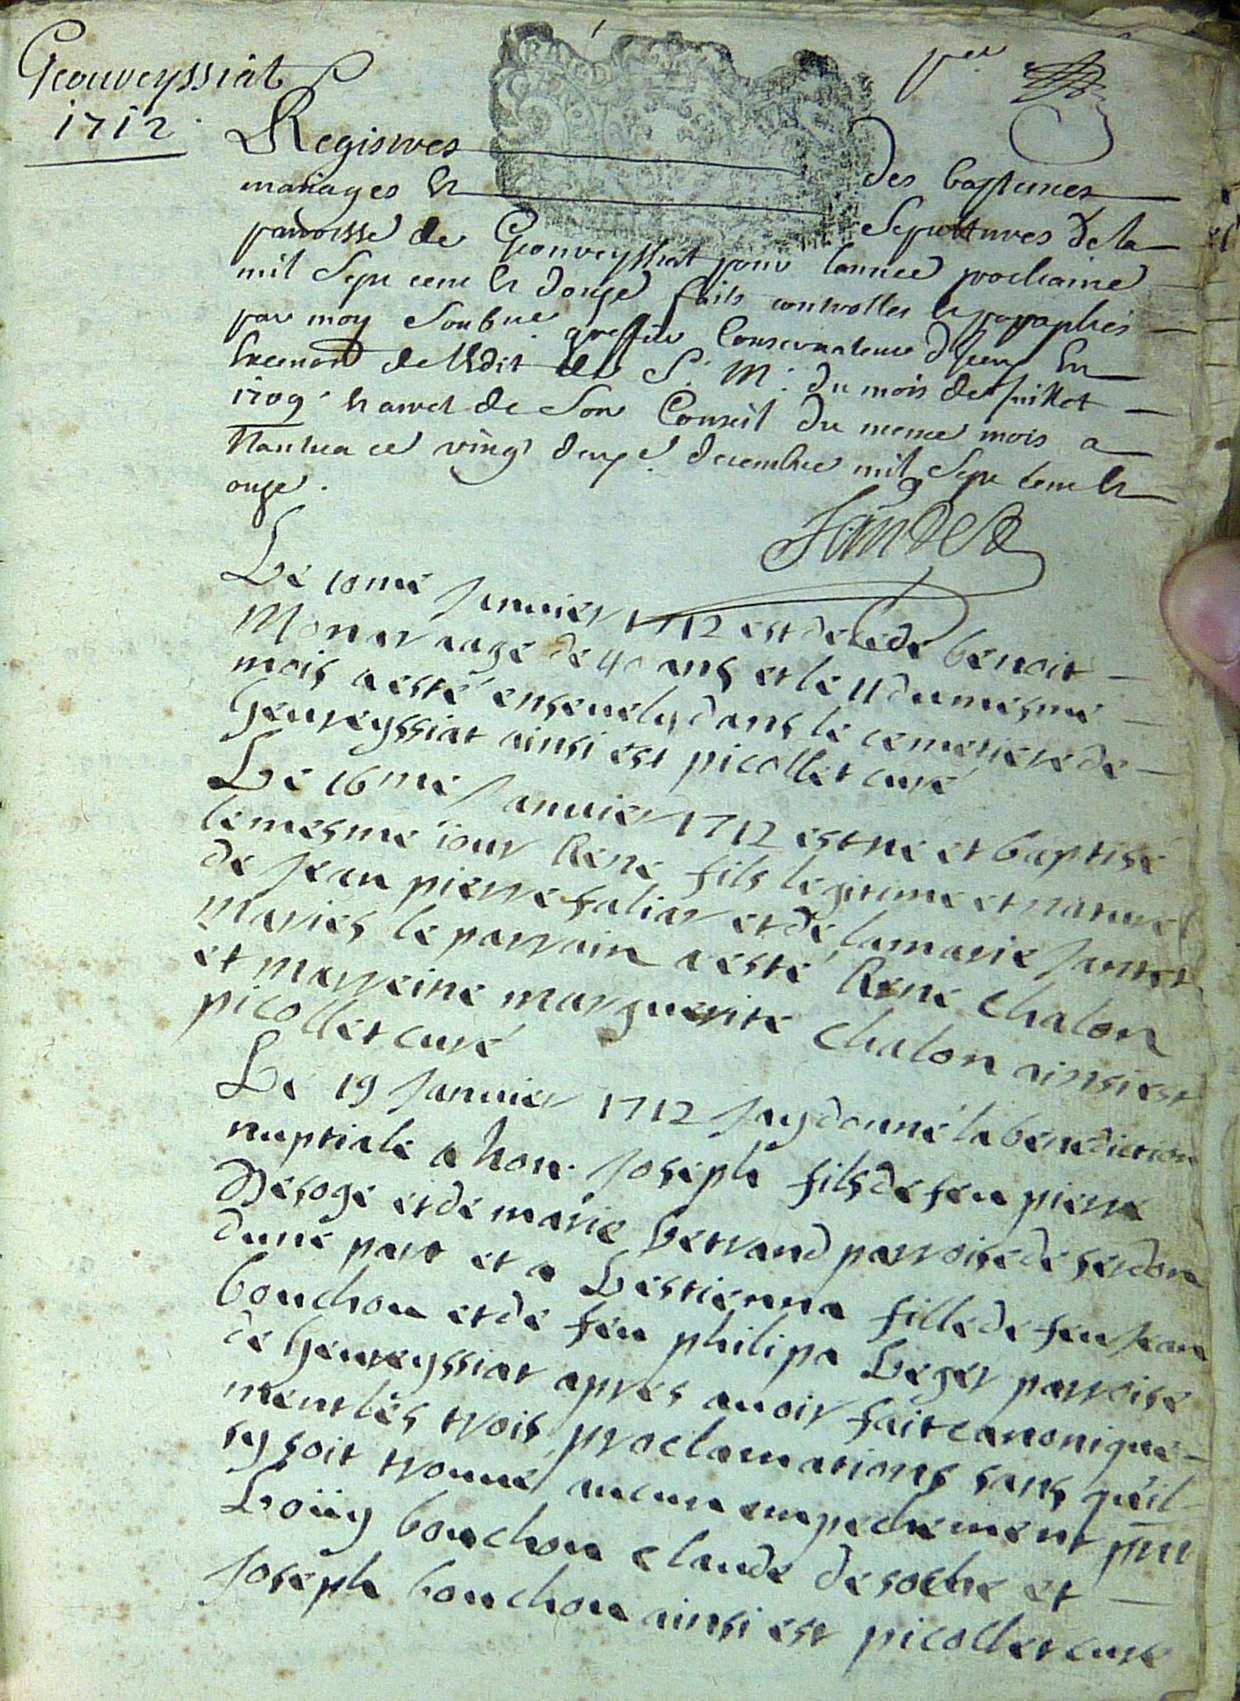 Geouveyssiat
1712
Registres des baptemes
mariages et sepultures de la
paroisse de Geouveyssiat pour lannee prochaine
mil sept cent et douze faits controlles et paraphés
par moy soubne greffier Conservateur diceux En
Execution de lEdit de S. M. du mois de Juillet
1709 et arret de son Conseil du meme mois a
Nantua ce vingt deux decembre mil sept cent et
onze.
Le 10me Janvier 1712 est decede benoit
Monar aagé de 40 ans et le 11 du mesme
mois a esté enseuely dans le cemetiere de
Geuveyssiat ainsi est picollet curé
Le 16me Janvier 1712 est né et baptisé
le mesme iour René fils legitime et naturel
de Jean pierre et de
Mariés le parrain a esté René Chalon
et marreine marguerite Chalon ainsi est
picollet curé
Le 19 Janvier 1712 Jay donné la benediction
nuptiale a hon. Joseph fils de feu pierre
Desoge et de marie bertrand parroise de serdon
dune part et a Lestienna fille de feu Jean
bouchou et de feu philipa Leger parroise
de Geuveyssiat apres auoir fait canonique-
ment les trois proclamations sans quil
sy soit trouué aucun empechement pnt
Loüys bouchou claude desoche et
Joseph bouchou ainsi est picollet curé